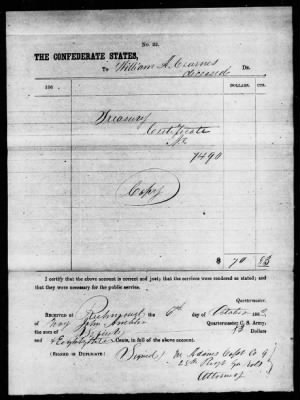 No. 22.
THE CONFEDERATE STATES,
To William A. Carnes Dr.
deceased
186 DOLLARS. CTS.
Treasury
Certificate
No
7490
Copy
$ 70 83
Quartermaster.
I certify that the above account is correct and just; that the services were rendered as stated; and
that they were necessary for the public service.
Quartermaster.
RECEIVED at Richmond the 6th day of October 186
of Maj John Ambler Quartermaster C. S. Army,
the sum of Seventy 83
& Eighty three Cents, in full of the above account.
(SIGNED IN DUPLICATE.) Signed M Adams Capt Co
25th Regt Ga Vols
Attorney